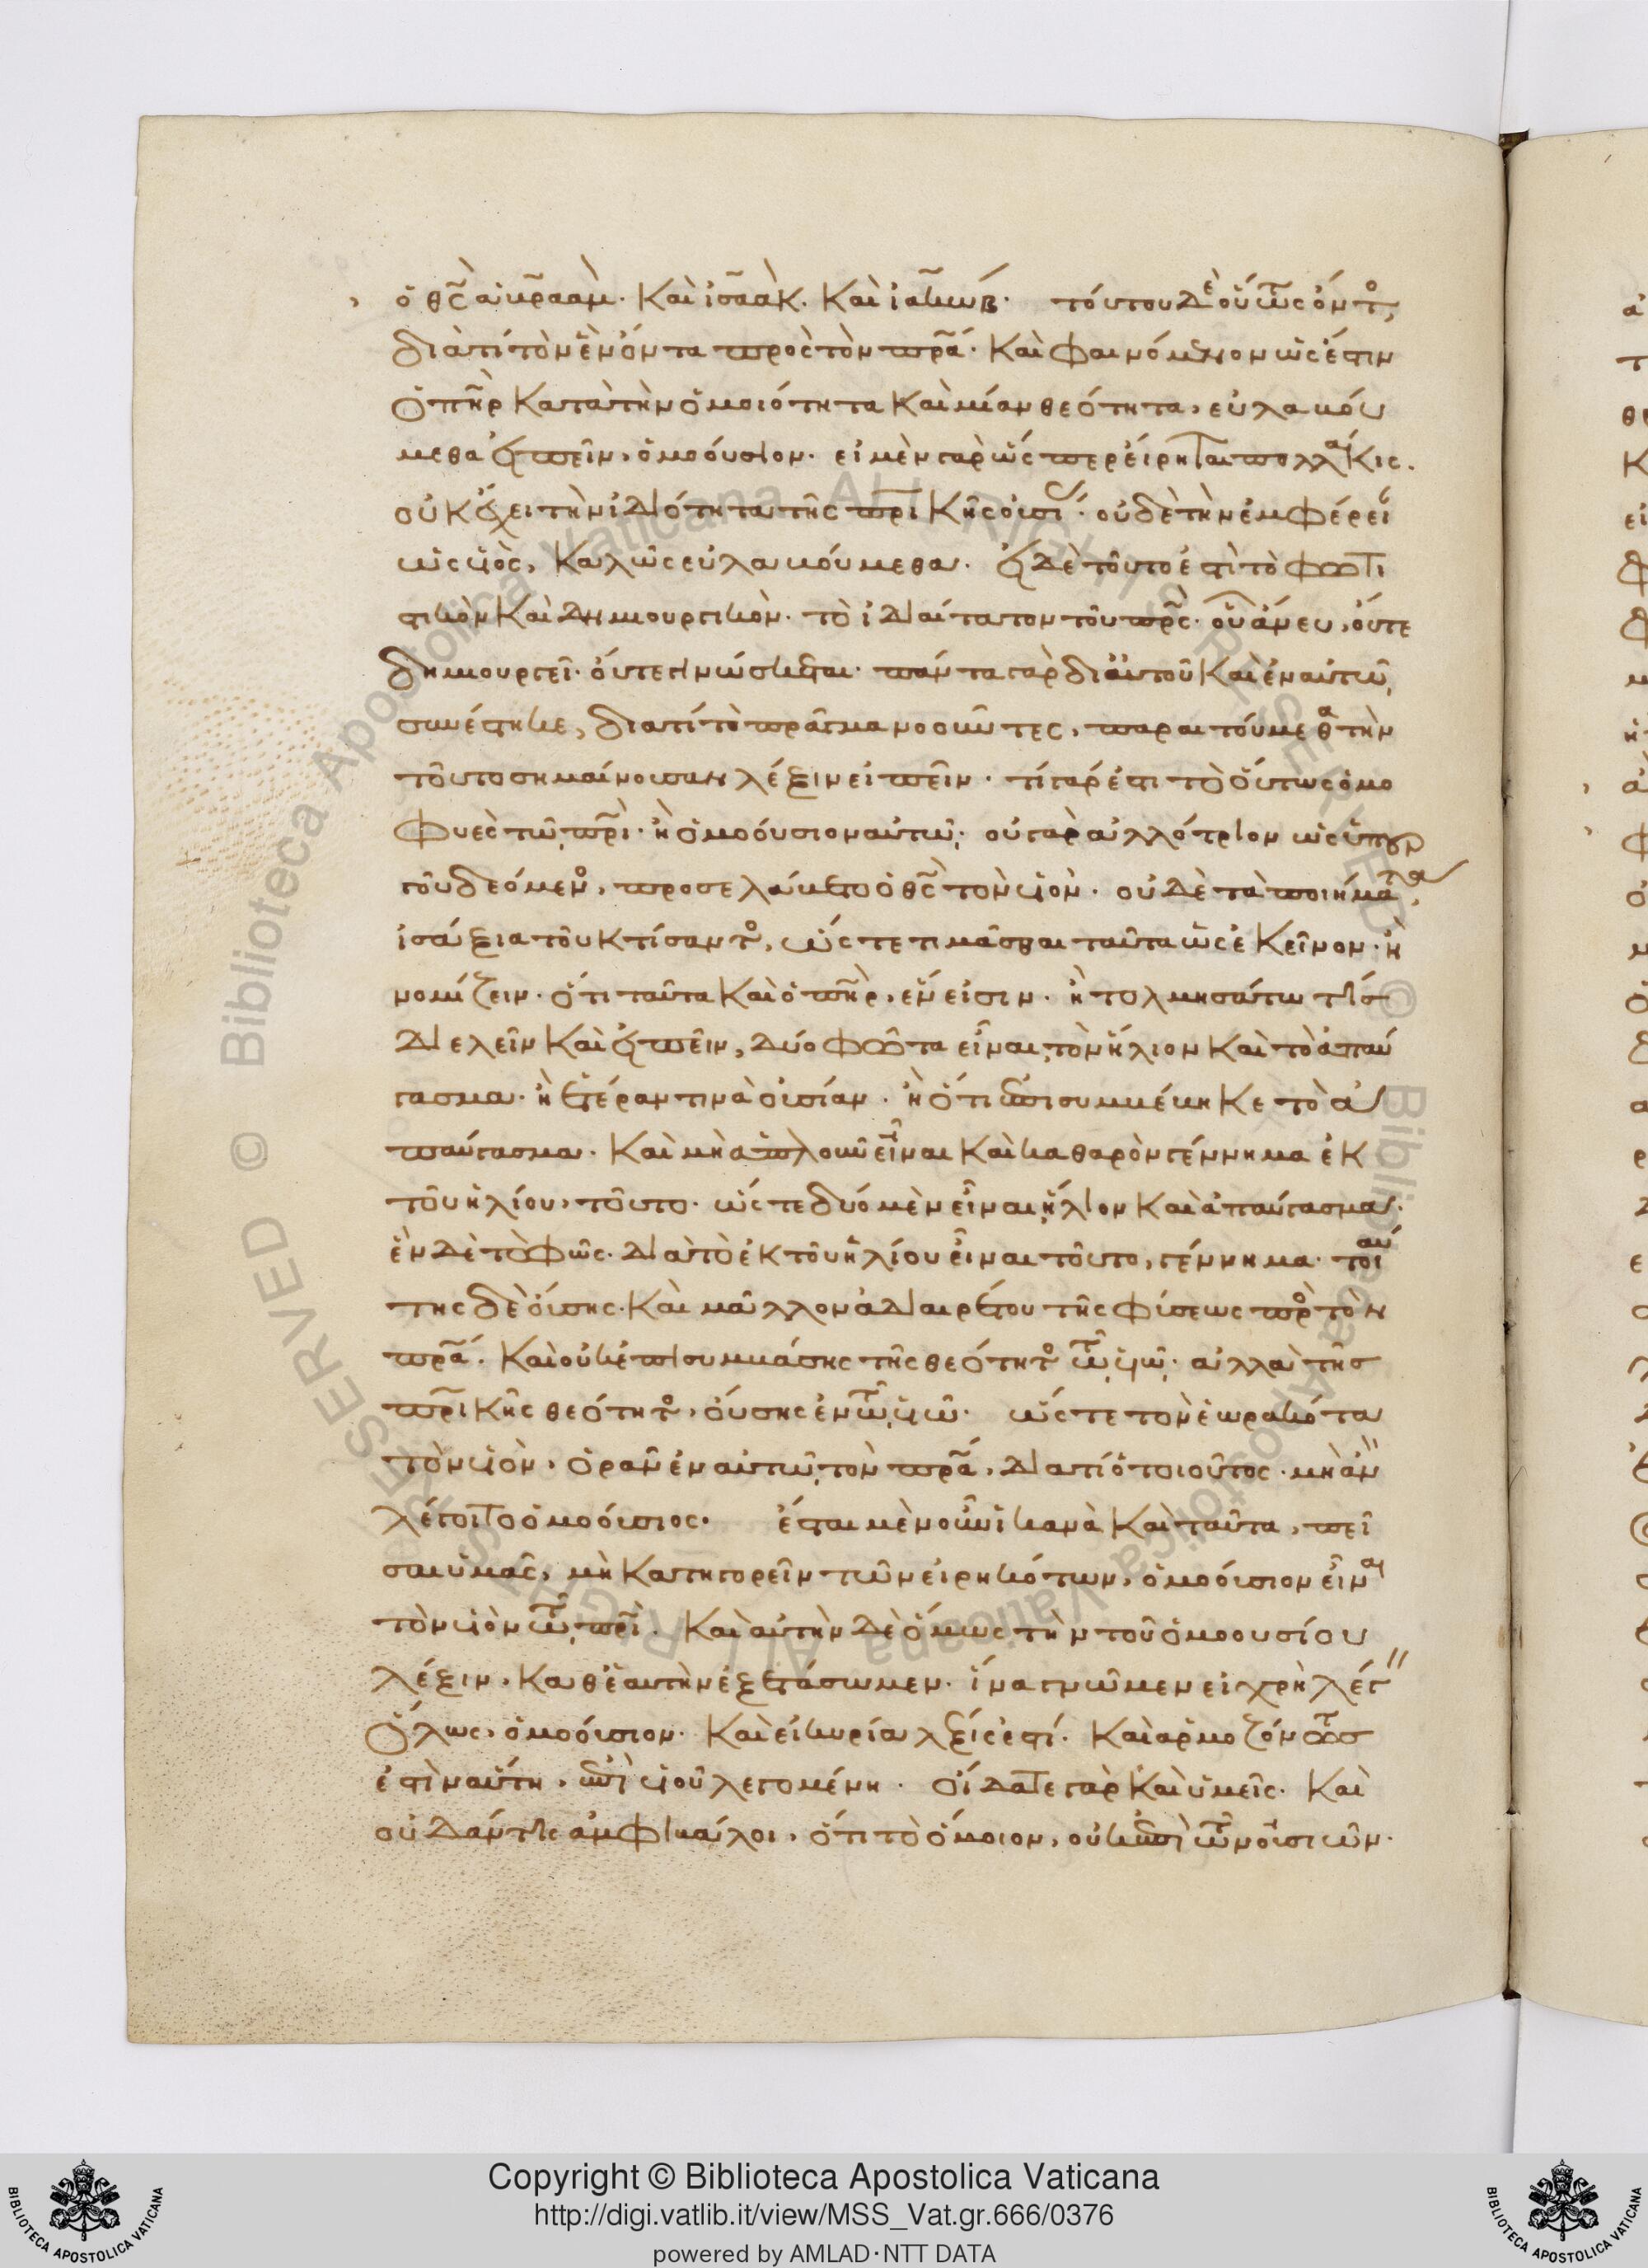 ὁ θς̃ ἀβρ̃αάμ. καὶ ἰσ̃αάκ. καὶ ἰακώβ. τούτου δὲ οὕτως ὄντος,
διατί τὸν ἓν ὄντα πρὸς τὸν πρ̃α. καὶ φαινόμενον ὡς ἔστιν
ὁ πη̃ρ κατὰ τὴν ὁμοιότητα καὶ μίαν θεότητα, εὐλαβού
μεθα εἰπεῖν, ὁμοούσιον. εἰ μὲν γὰρ ὥσπερ εἴρηται πολλάκις.
οὐκ ἔχει τὴν ἰδιότητα τῆς πρ̃ικῆς οὐσί. οὐδὲ τὴν ἐμφέρει
ὡς υἱὸς, καλῶς εὐλαβούμεθα. εἰ δὲ τοῦτο ἐστὶ τὸ φωτι
στικὸν καὶ δημιουργικὸν. τὸ ἰδιαίτατον τοῦ πρ̃ς. οὗ ἄνευ, οὔτε
δημιουργεῖ. οὔτε γινώσκεται. πάντα γὰρ δι αὐτοῦ καὶ ἐν αὐτῷ
συνέστηκε, διατί τὸ πρᾶγμα νοοῦντες, παραιτούμεθα τὴν
τοῦτο σημαίνουσαν λέξιν εἰπεῖν. τί γάρ ἐστι τὸ οὕτως ὁμο
φυὲς τῷ πρ̃ι. ἢ ὁμοούσιον αὐτῷ. οὐ γὰρ ἀλλότριον ὡς ὑπουρ
γοῦ δεόμενος, προσελάβετο ὁ θς̃ τὸν υἱὸν. οὐδὲ τὰ ποιήματα,
ἰσάξια τοῦ κτίσαντος, ὥστε τιμᾶσθαι ταῦτα ὡς ἐκεῖνον. ἢ
νομίζειν. ὅτι ταῦτα καὶ ὁ πη̃ρ, ἕν εἰσιν. ἢ τολμησάτω τίς
διελεῖν καὶ εἰπεῖν, δύο φῶτα εἶναι, τὸν ἥλιον καὶ τὸ ἀπαύ
γασμα. ἢ ἑτέραν τινὰ οὐσίαν. ἢ ὅτι ἐπισυμβέβηκε τὸ ἀ
παύγασμα. καὶ μὴ ἁπλοῦν εἶναι καὶ καθαρὸν γέννημα ἐκ
τοῦ ἡλίου, τοῦτο. ὥστε δυό μὲν εἶναι, ἥλιον καὶ ἀπαύγασμα.
ἓν δὲ τὸ φῶς. διὰ τὸ ἐκ τοῦ ἡλίου εἶναι τοῦτο, γέννημα. τοιαύ
της δὲ οὔσης. καὶ μᾶλλον ἀδιαιρέτου τῆς φύσεως πρὸς τὸν
πρ̃α. καὶ οὐκ ἐπισυμβάσης τῆς θεότητος τῷ υἱῷ. ἀλλὰ τῆς
πρ̃ικῆς θεότητος, οὔσης ἐν τῷ υἱῷ. ὥστε τὸν ἑωρακότα
τὸν υἱὸν, ὁρᾶν ἐν αὐτῷ, τὸν πρ̃α, διατί ὁ τοιοῦτος. μὴ ἂν
λέγοιτο ὁμοούσιος. ἔσται μὲν οὖν ἱκανὰ καὶ ταῦτα, πεῖ
σαι ὑμᾶς, μὴ κατηγορεῖν τῶν εἰρηκότων, ὁμοούσιον εἶναι
τὸν υἱὸν τῷ πρ̃ι. καὶ αὐτὴν δὲ ὅμως τὴν τοῦ ὁμοουσίου
λέξιν, καθ ἑαυτὴν ἐξετάσωμεν. ἵνα γνῶμεν εἰ χρὴ λέγ
ὅλως, ὁμοούσιον. καὶ εἰ κυρία λέξις ἐστί. καὶ ἁρμοζόντως
ἐστὶν αὕτη, ἐπὶ υἱοῦ λεγομένη. οἴδατε γὰρ καὶ ὑμεῖς. καὶ
οὐδ ἄν τις ἀμφιβάλοι, ὅτι τὸ ὅμοιον, οὐκ ἐπὶ τῶν οὐσιῶν.
Copyright © Biblioteca Apostolica Vaticana
http://digi.vatlib.it/view/MSS_Vat.gr.666/0376
powered by AMLAD·NTT DATA